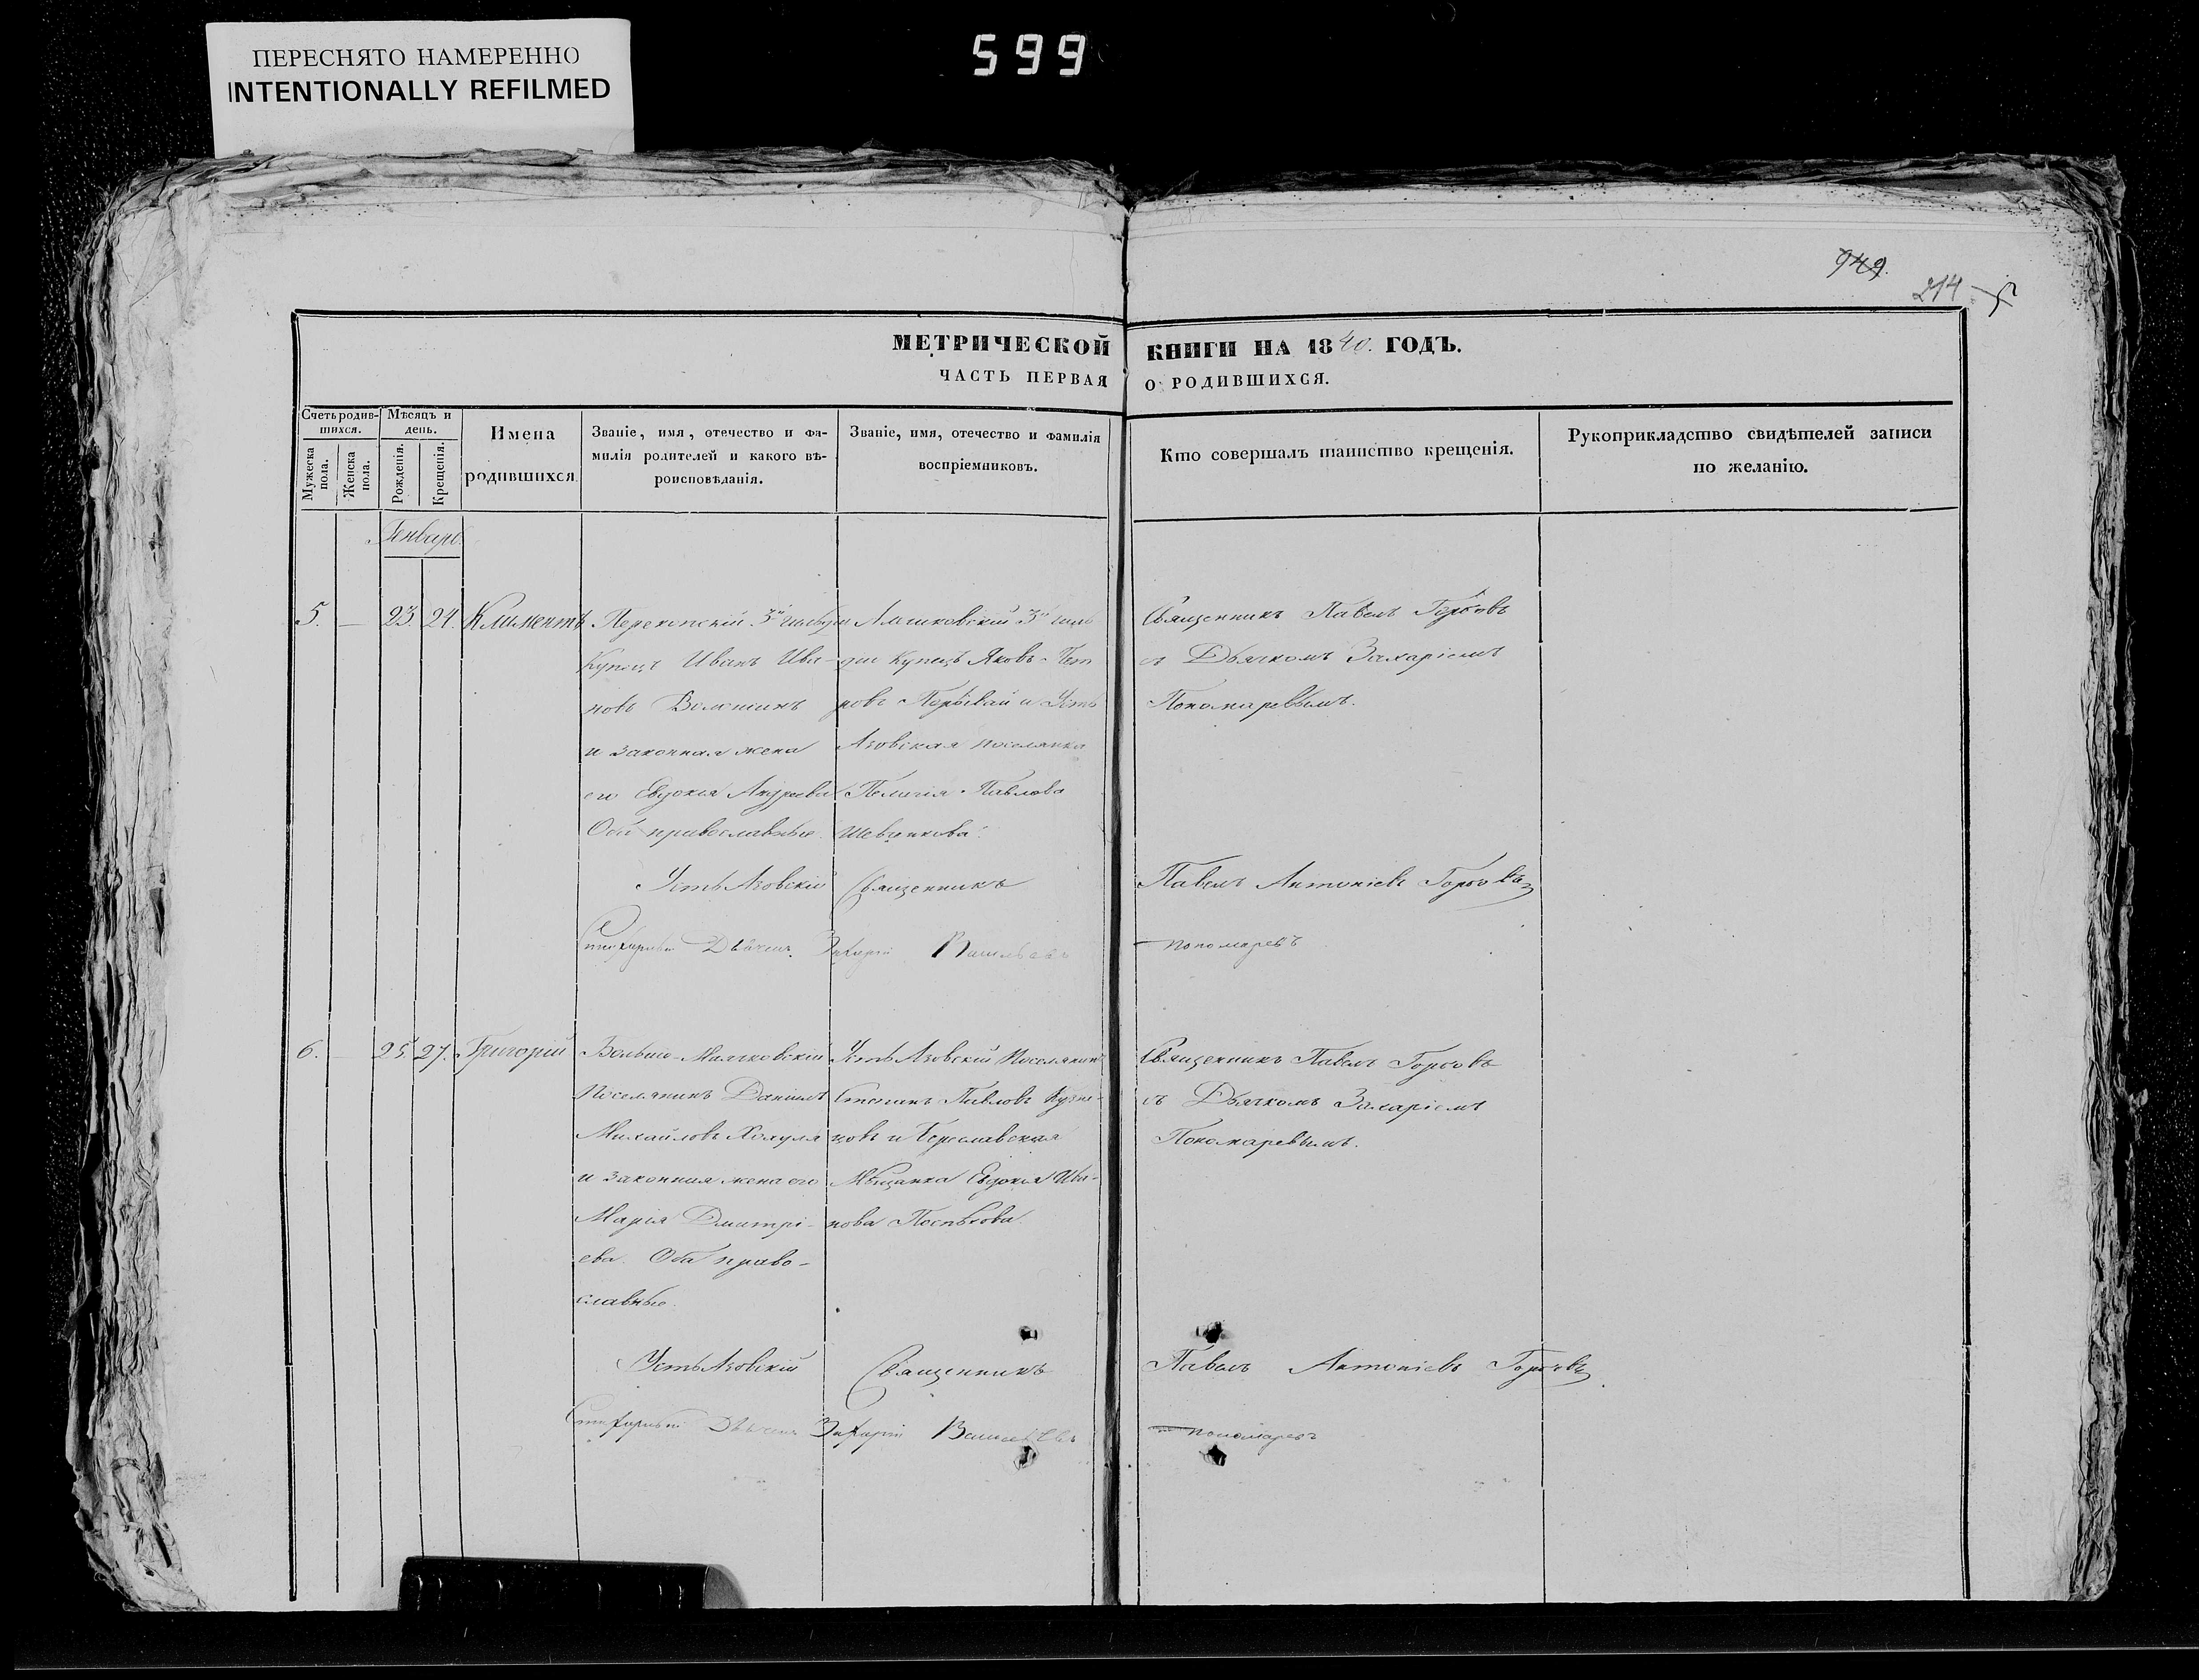 ПЕРЕСНЯТО НАМЕРЕННО
INTENTIONALLY REFILMED
599
949.
214
МЕТРИЧЕСКОЙ КНИГИ НА 1840. ГОДЪ.
ЧАСТЬ ПЕРВАЯ О РОДИВШИХСЯ.
Счетъ родившихся.
Мужеска пола.
Женска пола.
Мѣсяцъ и день.
Рожденія.
Крещенія.
Имена родившихся.
Званіе, имя, отечество и фа-
милія родителей и какого вѣ-
роисповѣданія.
Званіе, имя, отечество и фамилія
воспріемниковъ.
Кто совершалъ таинство крещенія.
Рукоприкладство свидѣтелей записи
по желанію.
Генварь.
5. — 23. 24. Климентъ
Перекопскій 3й гильдіи
Купецъ Иванъ Ива-
новъ Волошинъ
и законная жена
его Евдокія Андреева
Оба православные.
3й гиль
діи Купецъ Яковъ Пет
ровъ и Усть
Азовская поселянка
Пелагія Павлова
Шевченкова.
Священникъ Павелъ Горбовъ
съ Дьячкомъ Захаріемъ
Пономаревымъ.
Усть Азовскій Священникъ Павелъ Антоніевъ Горбовъ
Стихарный Дьячекъ Захарій Васильевъ Пономаревъ
6. — 25. 27. Григорій
Больше-Маячковскій
Поселянинъ Даніилъ
Михайловъ
и законная жена его
Марія Дмитрі-
ева. Оба право-
славные.
Усть Азовскій Поселянинъ
Степанъ Павловъ Кузне-
цовъ и Береславская
Мѣщанка Евдокія Ива-
нова
Священникъ Павелъ Горбовъ
съ Дьячкомъ Захаріемъ
Пономаревымъ.
Усть Азовскій Священникъ Павелъ Антоніевъ Горбовъ
Стихарный Дьячекъ Захарій Васильевъ Пономаревъ